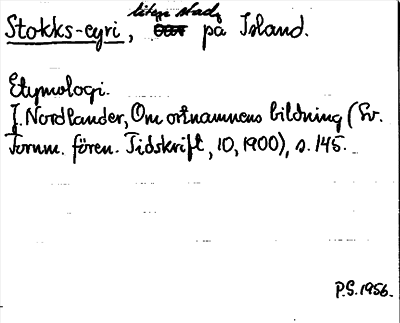 liten stad,
Stokks-eyri, på Island.
Etymologi.
J. Nordlander, Om ortnamnens bildning (Sv.
Fornm. fören. Tidskrift, 10, 1900), s. 145.
P.S. 1956.